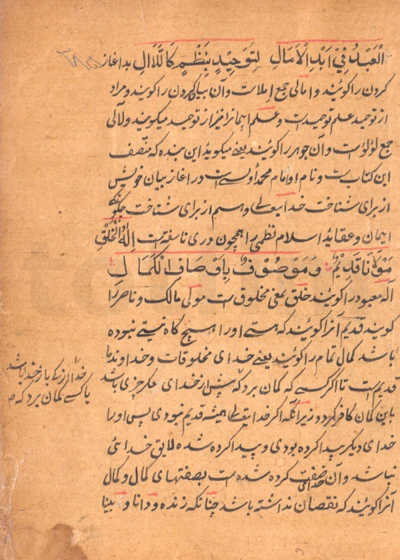 یقول العبد فی بدء الامالی لتوحید بنظم کاللآلی بدء آغاز
کردن را گویند و امالی جمع املات و آن بیان کردن را گویند و مراد
از توحید علم توحیدست و علم ایمانرا نیز از توحید میگویند و لآلی
جمع لؤلؤست و آن جوهر را گویند یعنی میگوید این بنده که مصنف
این کتاب ست و نام او امام محمد اوسی ست در آغاز بیان خویش
از برای شناخت خدایتعالی و هم از برای شناخت
ایمان و عقاید اسلام نظمی را همچون دری ناسفته ست إله الخلق
مولانا قدیم و موصوف باوصاف الکمال
اله معبود را گویند خلق بمعنی مخلوق ست مولی مالک و ناصر را
گویند قدیم آنرا گویند که هستی او را هیچ گاه نیستی نبوده
باشد کمال تمام را گویند یعنی خدای مخلوقات و خداوند ما
قدیم ست تا اگر کسی که گمان برد که پیش از خدای دیگر چیزی باشد
باین گمان کافر گردد زیرانکه اگر خدایتعالی همیشه قدیم نبودی پس او را
خدای دیگر پیدا کرده بودی و پیدا کرده شده لایق خدائی
نباشد و آن خدای صفت کرده شده ست بصفتهای کمال و کمال
آنرا گویند که نقصان نداشته باشد چنانکه زنده و دانا و بینا
باشد
یا کسی گمان برد که